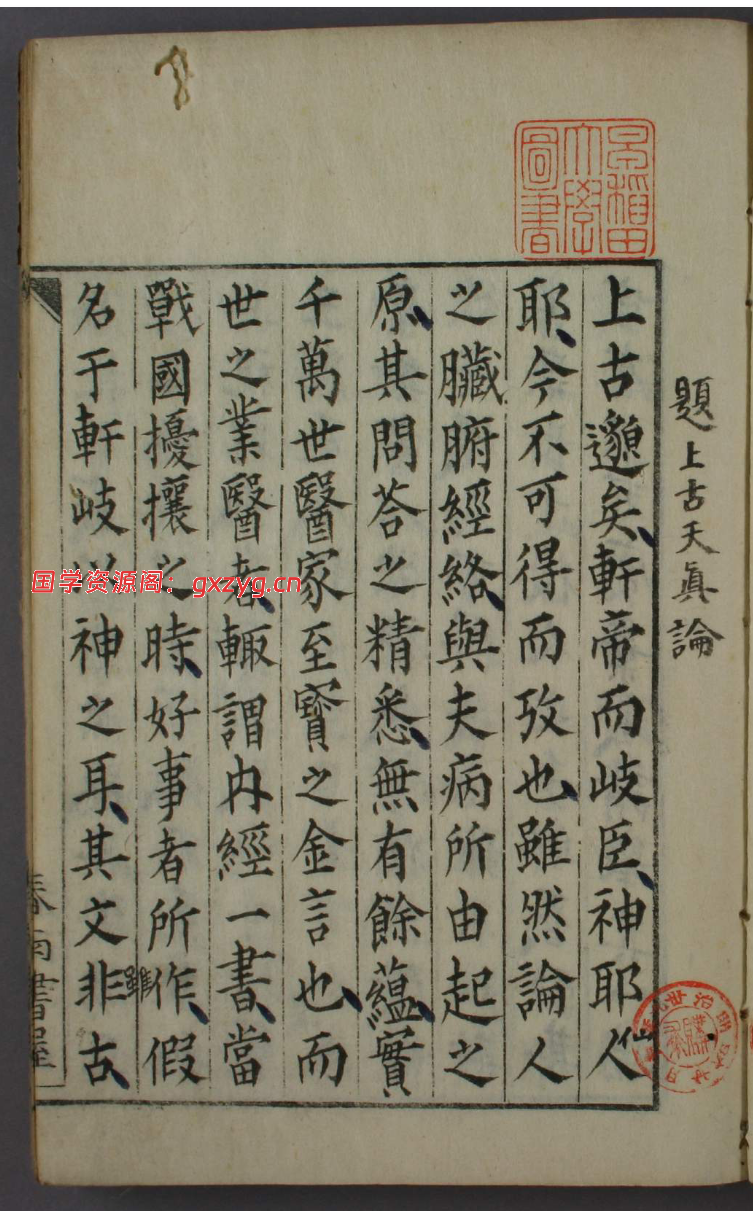 題上古天眞論
上古邈矣軒帝而岐臣神耶人仙
耶今不可得而攷也雖然論人
之臟腑經絡與夫病所由起之
原其問荅之精悉無有餘蘊實
千萬世醫家至寶之金言也而
世之業醫者輙謂内經一書當
戰國擾攘之時好事者所作假
雖
名于軒岐以神之耳其文非古
書屋
早稻田
大學
圖書
国学资源阁：gxzyg.cn